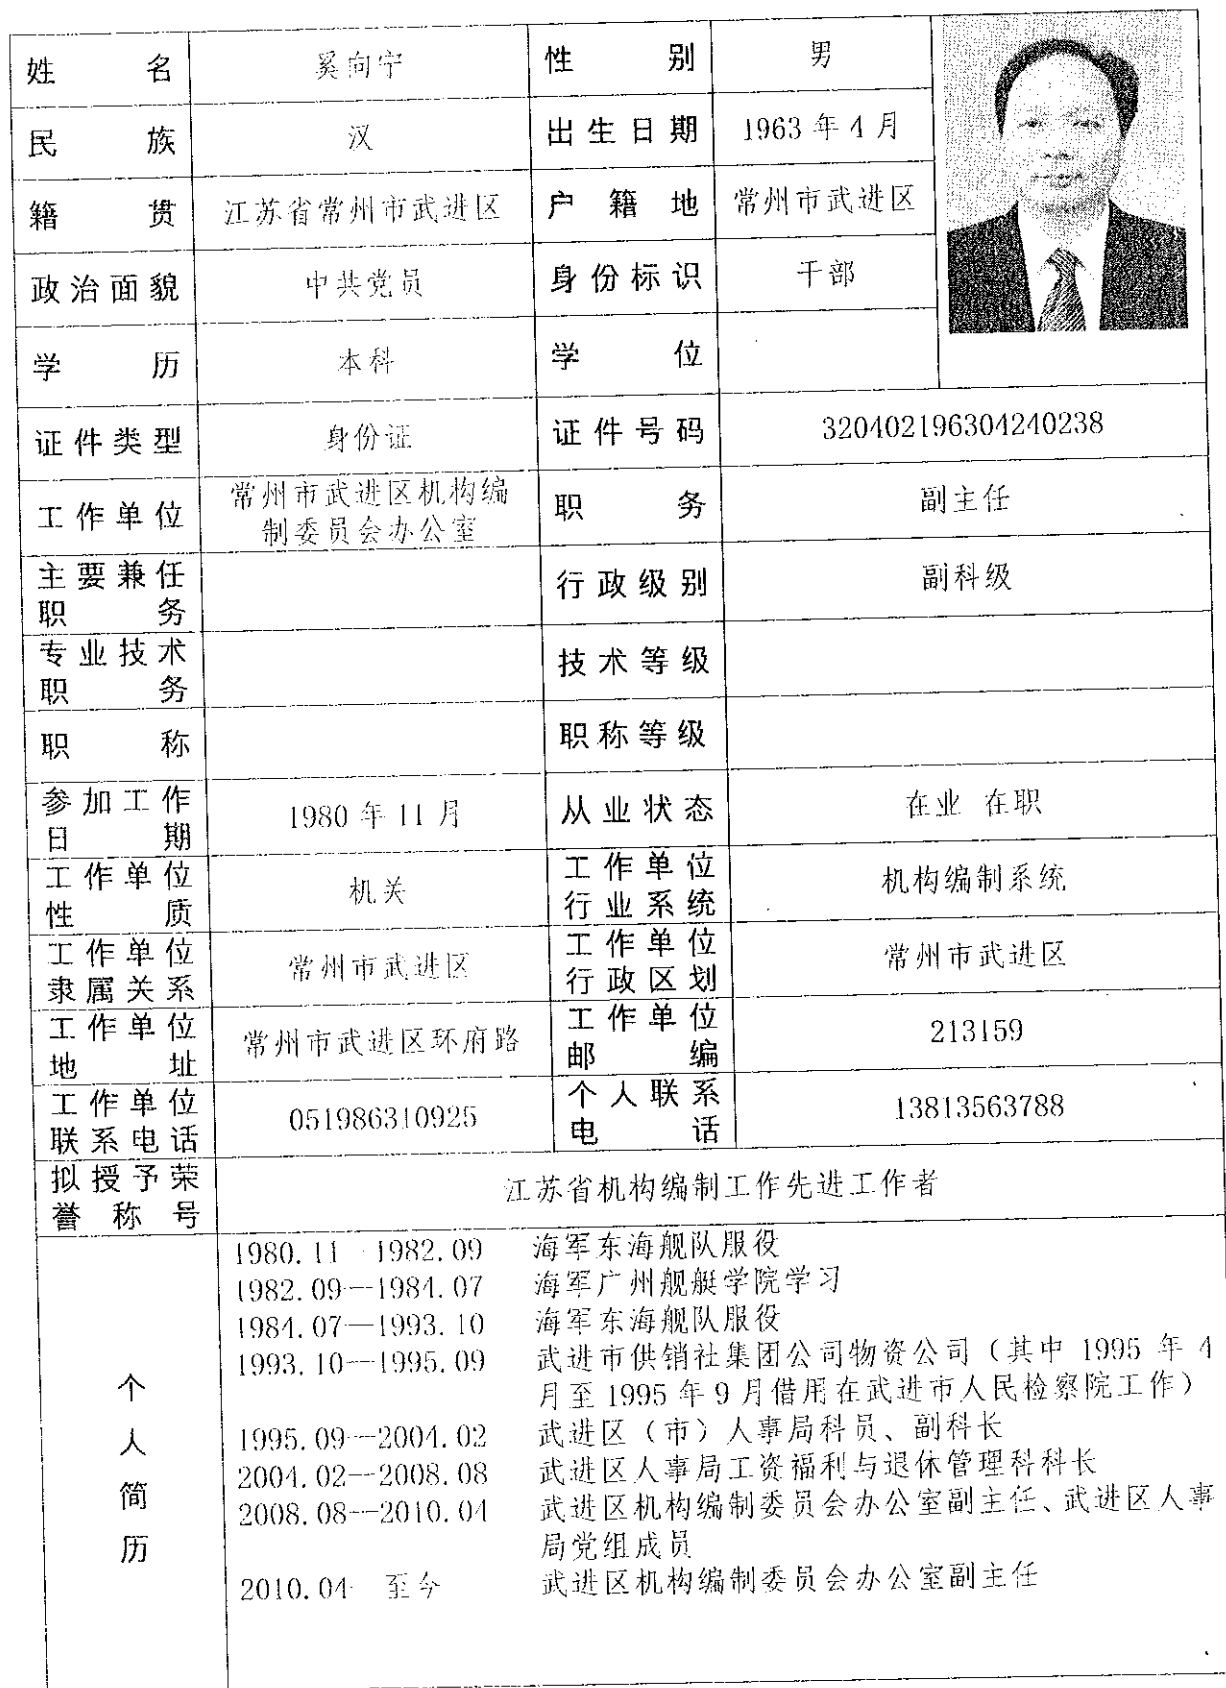 姓名 奚向宁 性别 男
民族 汉 出生日期 1963年4月
籍贯 江苏省常州市武进区 户籍地 常州市武进区
政治面貌 中共党员 身份标识 干部
学历 本科 学位
证件类型 身份证 证件号码 320402196304240238
工作单位 常州市武进区机构编
制委员会办公室 职务 副主任
主要兼任
职务 行政级别 副科级
专业技术
职务 技术等级
职称 职称等级
参加工作
日期 1980年11月 从业状态 在业 在职
工作单位
性质 机关 工作单位
行业系统 机构编制系统
工作单位
隶属关系 常州市武进区 工作单位
行政区划 常州市武进区
工作单位
地址 常州市武进区环府路 工作单位
邮编 213159
工作单位
联系电话 051986310925 个人联系
电话 13813563788
拟授予荣
誉称号 江苏省机构编制工作先进工作者
个人简历
1980.11 1982.09 海军东海舰队服役
1982.09—1984.07 海军广州舰艇学院学习
1984.07—1993.10 海军东海舰队服役
1993.10—1995.09 武进市供销社集团公司物资公司（其中1995年4
月至1995年9月借用在武进市人民检察院工作）
1995.09—2004.02 武进区（市）人事局科员、副科长
2004.02—2008.08 武进区人事局工资福利与退休管理科科长
2008.08—2010.04 武进区机构编制委员会办公室副主任、武进区人事
局党组成员
2010.04 至今 武进区机构编制委员会办公室副主任